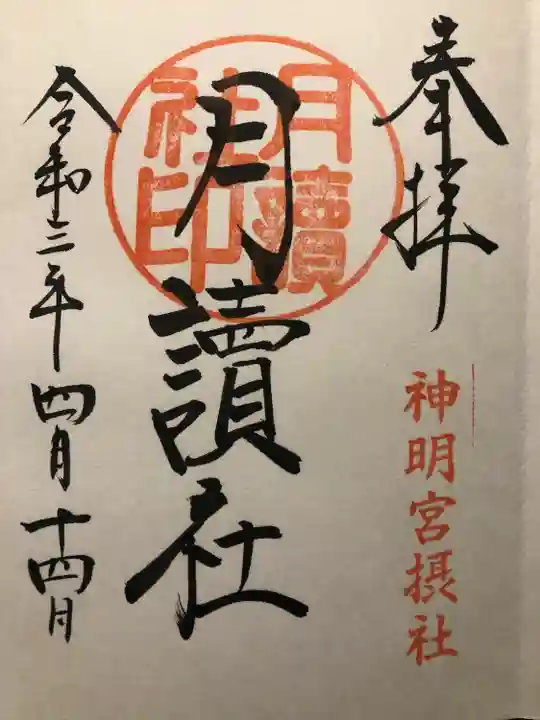 奉拝
神明宮摂社
月讀社印
月讀社
令和三年四月十四日